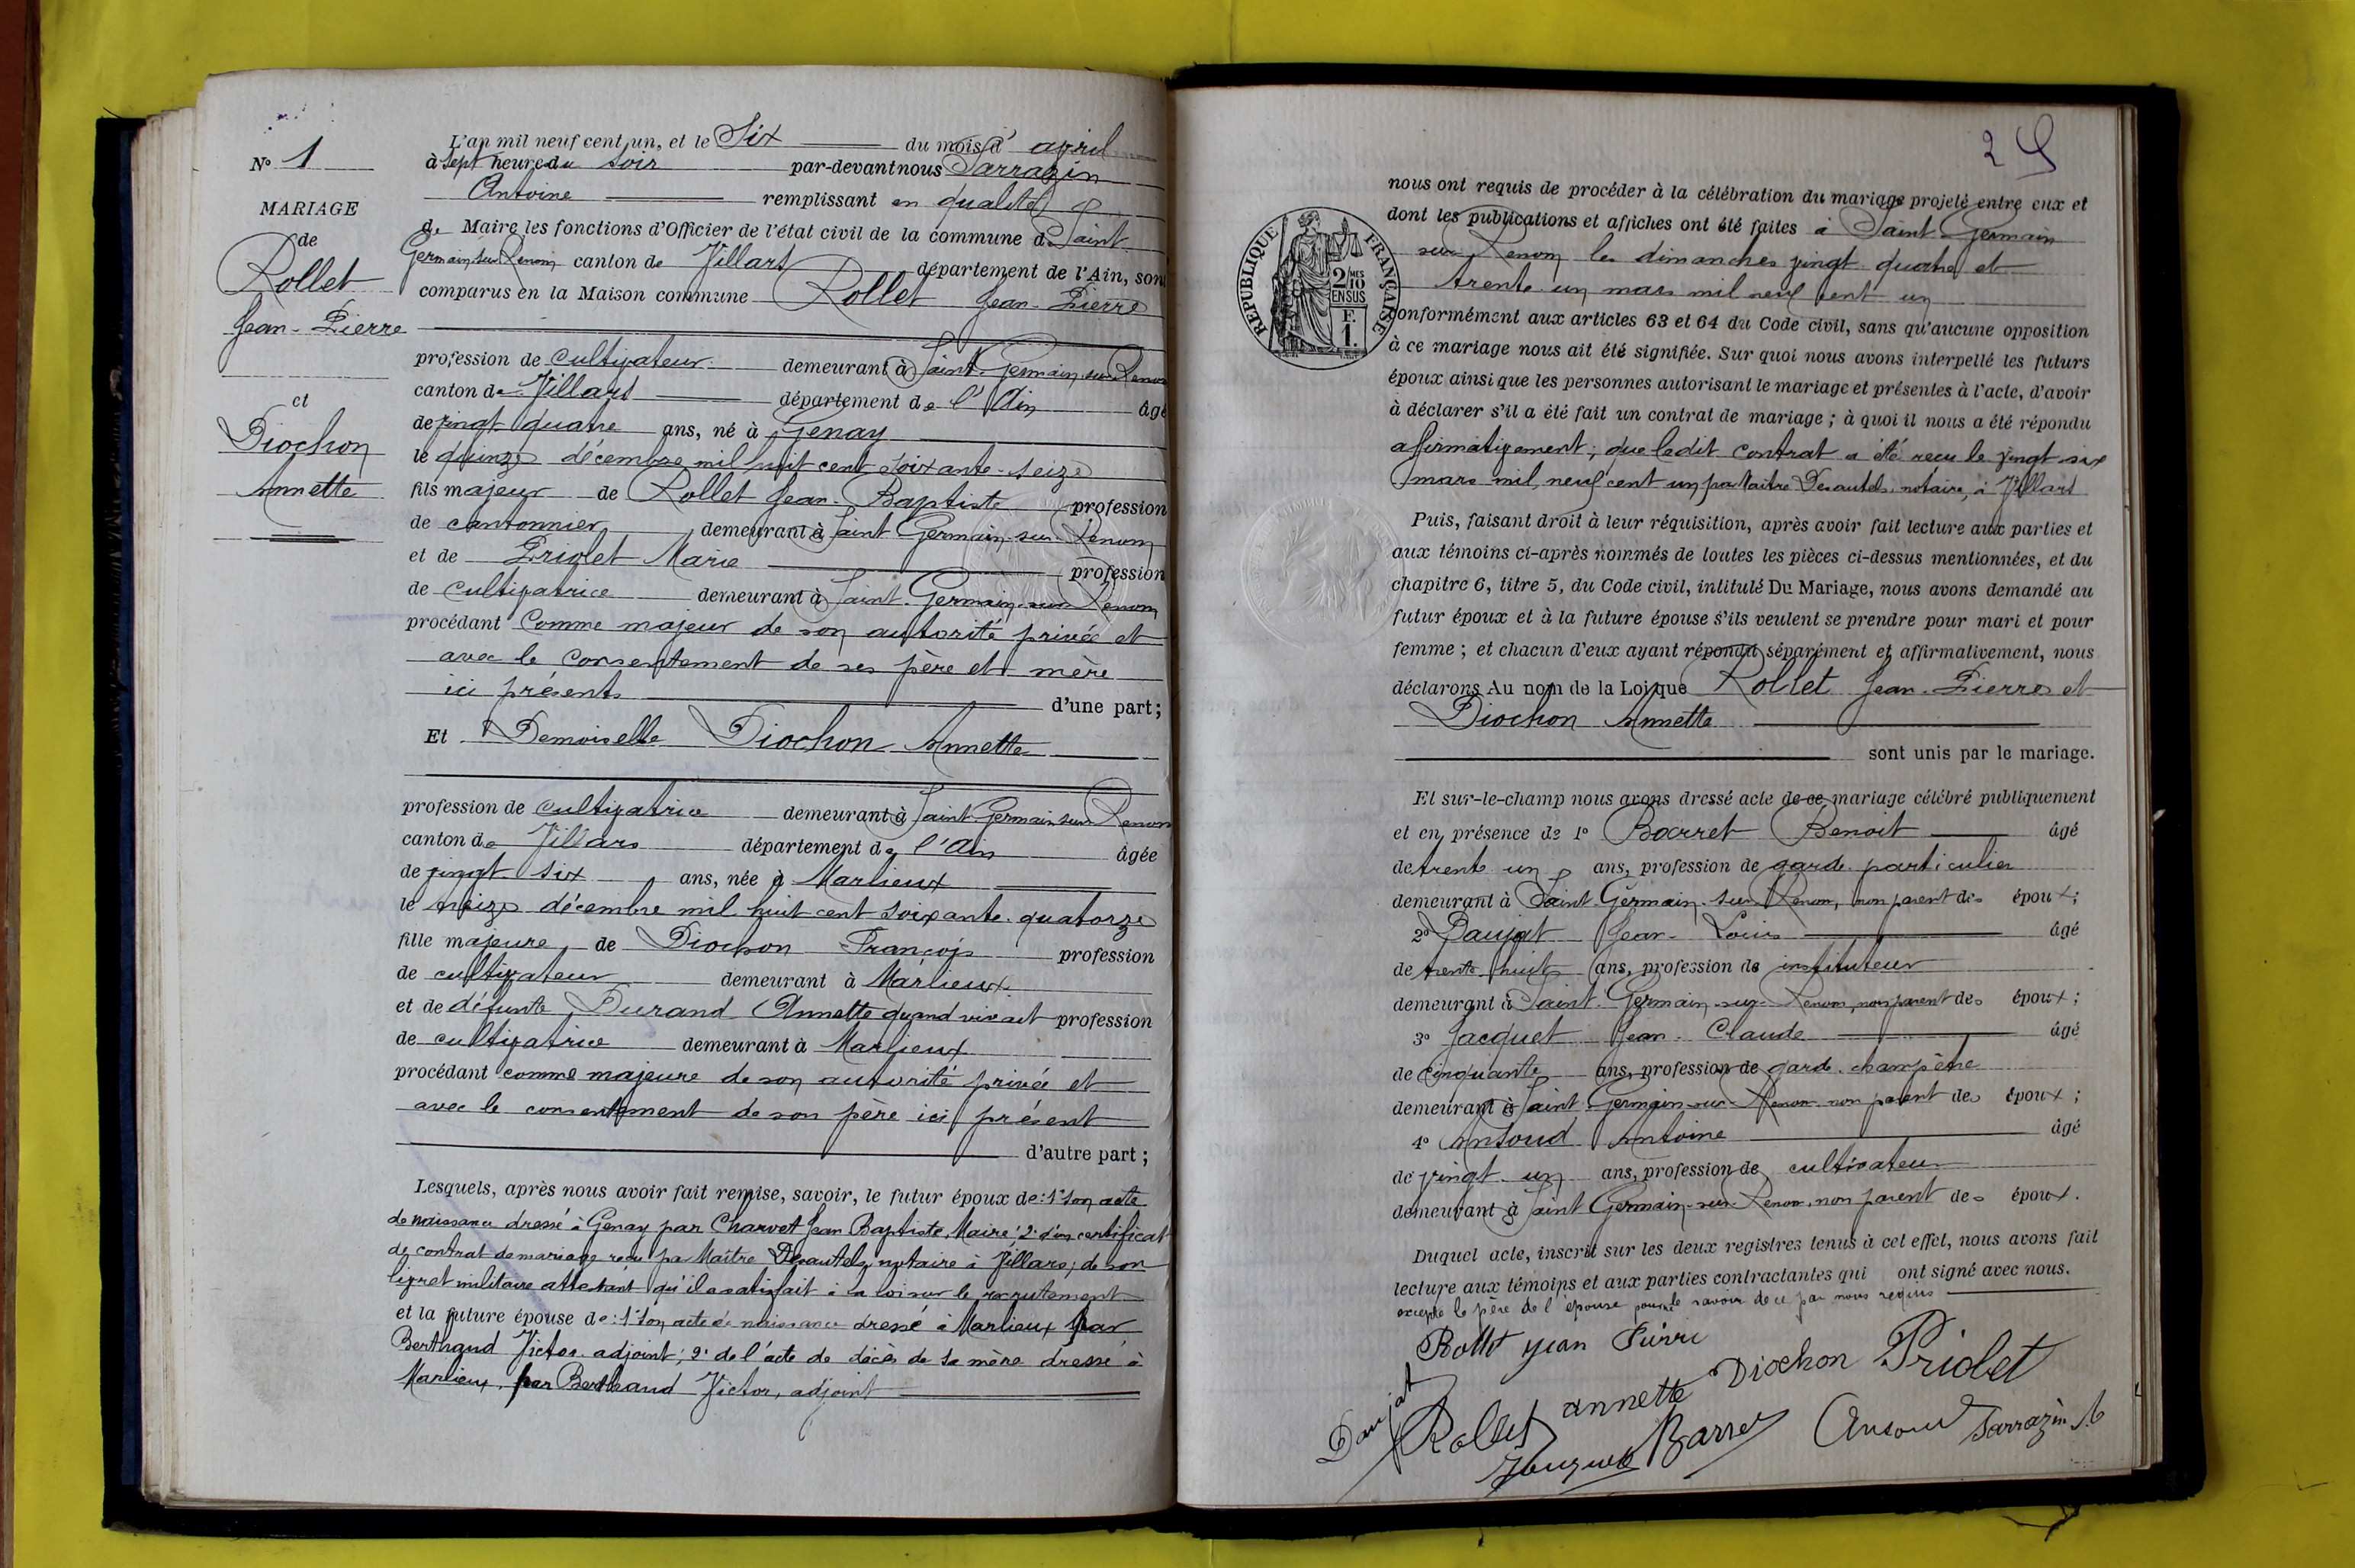 N° 1
MARIAGE
de
Rollet
Jean-Pierre
et
Diochon
Annette
L'an mil neuf cent un, et le Six du mois d' avril
à sept heures du soir par-devant nous Sarrazin
Antoine remplissant en qualité
de Maire les fonctions d'Officier de l'état civil de la commune de Saint
Germain sur Renom canton de Villars département de l'Ain, sont
comparus en la Maison commune Rollet Jean-Pierre
profession de cultivateur demeurant à Saint-Germain-sur-Renom
canton de Villars département de l'Ain âgé
de vingt-quatre ans, né à Genay
le quinze décembre mil huit cent soixante-seize
fils majeur de Rollet Jean-Baptiste profession
de cantonnier demeurant à Saint Germain-sur-Renom
et de Priolet Marie profession
de cultivatrice demeurant à Saint-Germain-sur-Renom
procédant comme majeur de son autorité privée et
avec le consentement de ses père et mère
ici présents d'une part;
Et Demoiselle Diochon Annette
profession de cultivatrice demeurant à Saint-Germain sur Renom
canton de Villars département de l'Ain âgée
de vingt-six ans, née à Marlieux
le treize décembre mil huit cent soixante-quatorze
fille majeure de Diochon François profession
de cultivateur demeurant à Marlieux
et de défunte Durand Annette quand vivait profession
de cultivatrice demeurant à Marlieux
procédant comme majeure de son autorité privée et
avec le consentement de son père ici présent
d'autre part;
Lesquels, après nous avoir fait remise, savoir, le futur époux de: 1° son acte
de naissance dressé à Genay par Charvet Jean Baptiste, Maire; 2° d'un certificat
de contrat de mariage reçu par Maître Desautels notaire à Villars; de son
livret militaire attestant qu'il a satisfait à la loi sur le recrutement
et la future épouse de: 1° son acte de naissance dressé à Marlieux par
Berthaud Victor adjoint; 2° de l'acte de décès de sa mère dressé à
Marlieux, par Berthaud Victor, adjoint
nous ont requis de procéder à la célébration du mariage projeté entre eux et
dont les publications et affiches ont été faites à Saint-Germain
sur Renom les dimanches vingt-quatre et
trente-un mars mil neuf cent un
conformément aux articles 63 et 64 du Code civil, sans qu'aucune opposition
à ce mariage nous ait été signifiée. Sur quoi nous avons interpellé les futurs
époux ainsi que les personnes autorisant le mariage et présentes à l'acte, d'avoir
à déclarer s'il a été fait un contrat de mariage; à quoi il nous a été répondu
affirmativement; que ledit contrat a été reçu le vingt-six
mars mil neuf cent un par Maître Desautels notaire, à Villars
Puis, faisant droit à leur réquisition, après avoir fait lecture aux parties et
aux témoins ci-après nommés de toutes les pièces ci-dessus mentionnées, et du
chapitre 6, titre 5, du Code civil, intitulé Du Mariage, nous avons demandé au
futur époux et à la future épouse s'ils veulent se prendre pour mari et pour
femme; et chacun d'eux ayant répondu séparément et affirmativement, nous
déclarons Au nom de la Loi que Rollet Jean-Pierre et
Diochon Annette
sont unis par le mariage.
Et sur-le-champ nous avons dressé acte de ce mariage célébré publiquement
et en présence de 1° Barret Benoit âgé
de trente un ans, profession de garde particulier
demeurant à Saint-Germain-sur-Renom, non parent des époux;
2° Daujat Jean-Louis âgé
de trente huit ans, profession de instituteur
demeurant à Saint-Germain-sur-Renom, non parent des époux;
3° Jacquet Jean-Claude âgé
de cinquante ans, profession de garde-champêtre
demeurant à Saint-Germain-sur-Renom non parent des époux;
4° Ansoud Antoine âgé
de vingt-un ans, profession de cultivateur
demeurant à Saint Germain-sur-Renom, non parent des époux.
Duquel acte, inscrit sur les deux registres tenus à cet effet, nous avons fait
lecture aux témoins et aux parties contractantes qui ont signé avec nous.
excepté le père de l'épouse pour ne savoir de ce par nous requis
Rollet Jean Pierre
annette Diochon Priolet
Daujat Rollet Jacquet Barret Ansoud Sarrazin A
RÉPUBLIQUE FRANÇAISE
2 MES
10
EN SUS
F.
1.